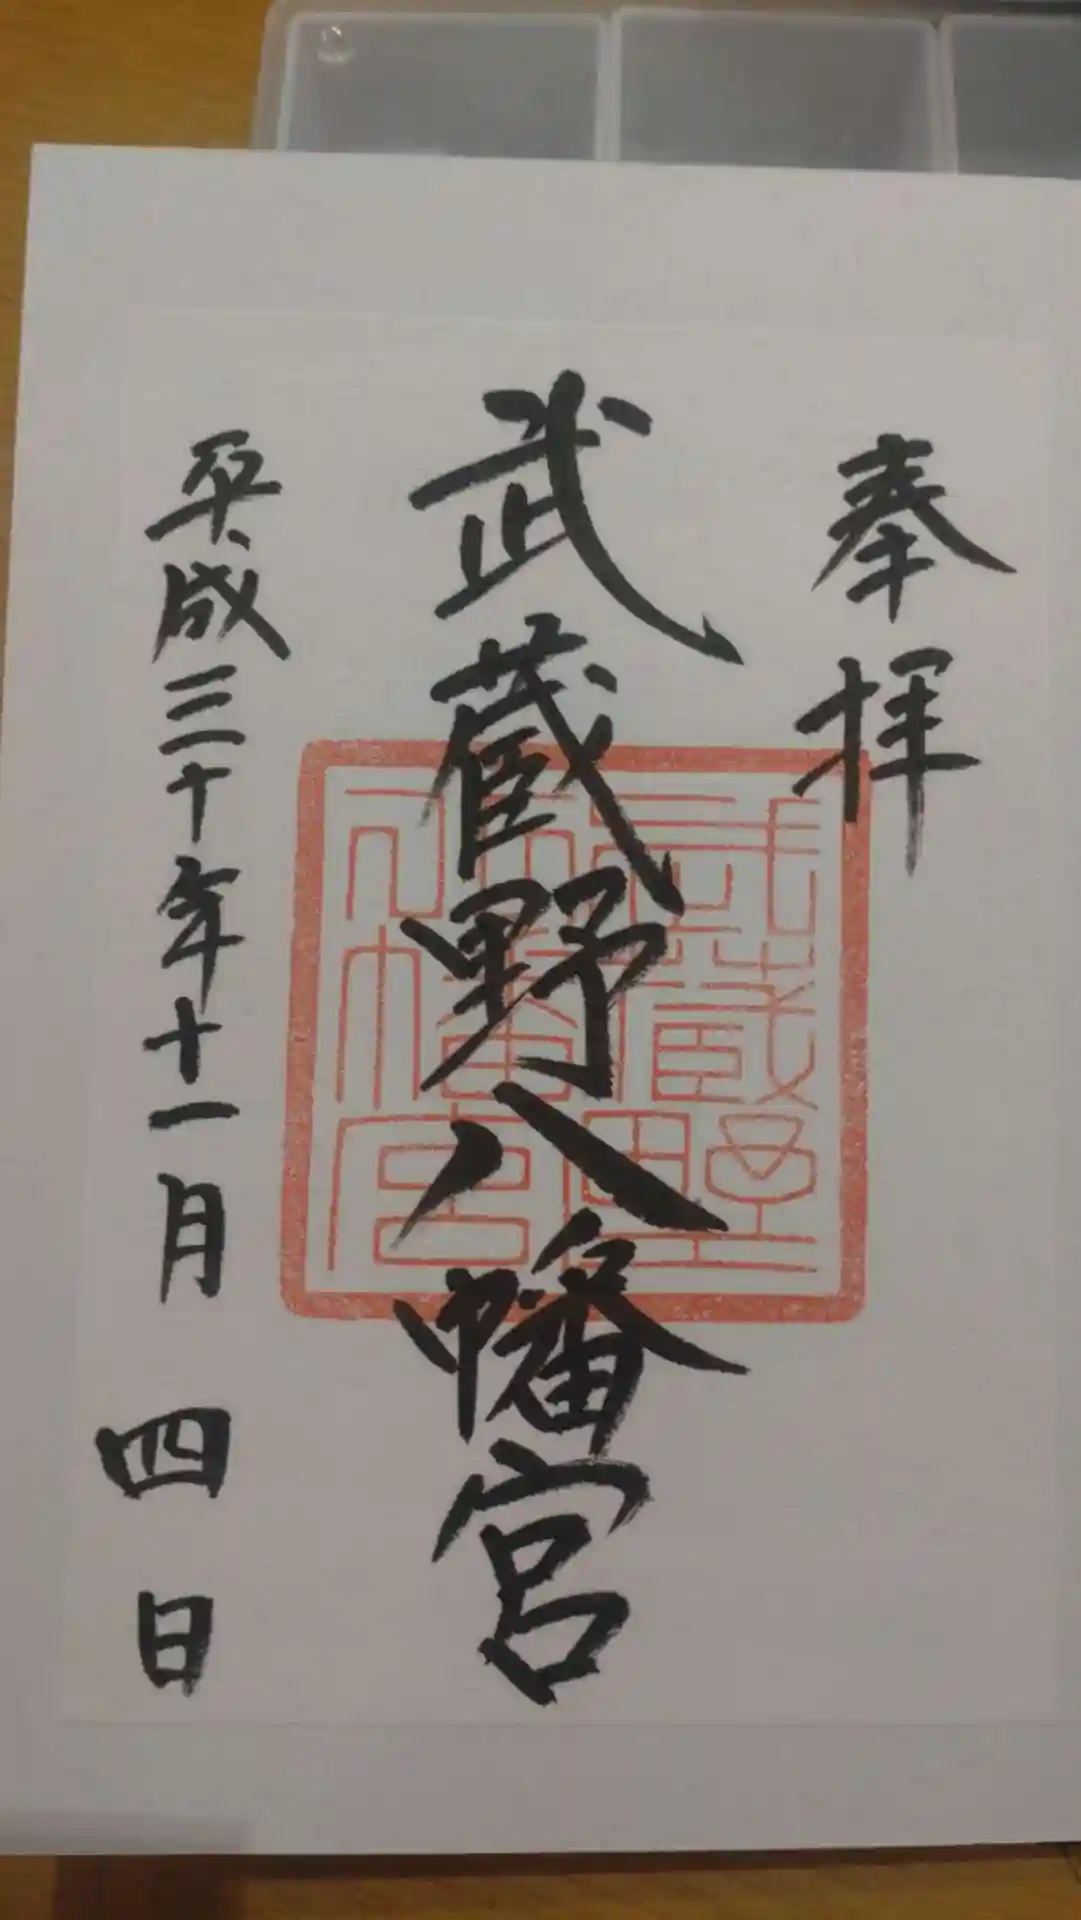 奉拝
武蔵野八幡宮
平成三十年十一月四日
武蔵野
八幡宮